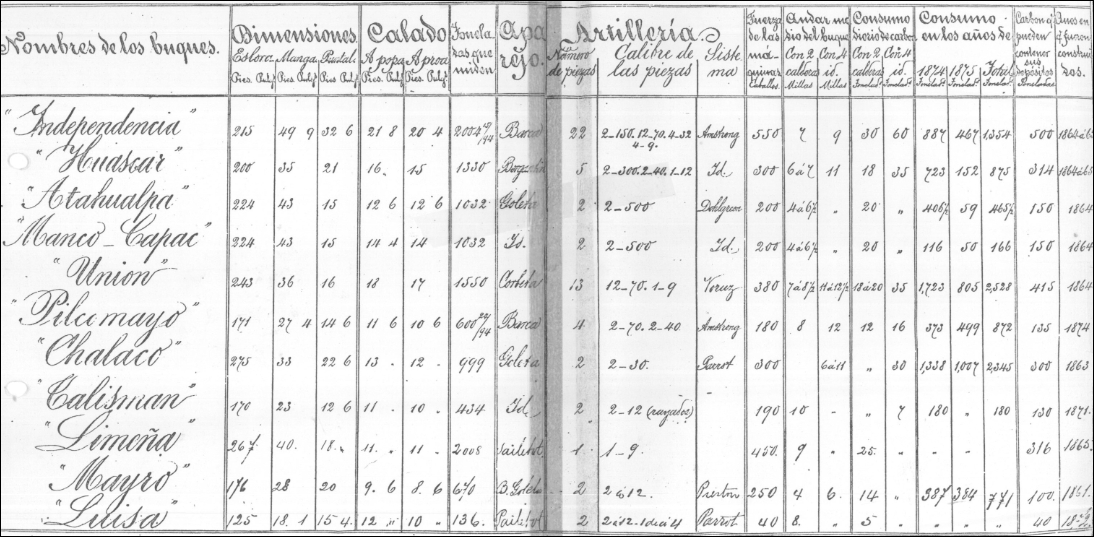 Nombres de los buques. Dimensiones Calado Toneladas que miden Aparejo. Artillería. Fuerza de las máquinas Andar medio del buque Consumo diario de carbon Consumo en los años de Carbon q. pueden contener sus depósitos Años en q. fueron construidos.
Eslora. Manga. Puntal. A popa A proa Número de piezas Calibre de las piezas Sistema Con 2 calderas Con 4 id. Con 2 calderas Con 4 id. 1874 1875 Total
Pies. Pulg. Pies. Pulg. Pies. Pulg. Pies. Pulg. Pies. Pulg. Caballos. Millas Millas Tonelads. Tonelads. Tonelads. Tonelads. Tonelads. Toneladas
"Independencia" 215 49 9 32 6 21 8 20 4 2004 Barca 22 2-150. 12-70. 4-32 4-9. Amstrong 550 7 9 30 60 887 467 1354 500 1864 á 65
"Huascar" 200 35 21 16 15 1330 5 2-300. 2-40. 1-12 Id. 300 6 á 7 11 18 35 723 152 875 314 1864 á 65
"Atahualpa" 224 43 15 12 6 12 6 1032 Goleta 2 2-500 Dahlgreen 200 4 á 6½ " 20 " 406½ 59 465½ 150 1864
"Manco-Capac" 224 43 15 14 4 14 1032 Id. 2 2-500 Id. 200 4 á 6½ " 20 " 116 50 166 150 1864
"Union" 243 36 16 18 17 1550 Corbeta 13 12-70. 1-9 Voruz 380 7 á 8½ 11 á 12½ 18 á 20 35 1,723 805 2,528 415 1864
"Pilcomayo" 171 27 4 14 6 11 6 10 6 600 Barca 4 2-70. 2-40 Amstrong 180 8 12 12 16 373 499 872 135 1874
"Chalaco" 275 33 22 6 13 . 12 . 999 Goleta 2 2-30. Parrot 300 6 á 11 " 30 1,338 1,007 2,345 300 1863
"Talisman" 170 23 12 6 11 . 10 . 434 Id. 2 2-12 (rayados) 190 10 - " 7 180 " 180 130 1871.
"Limeña" 267 40. 18. " 11. " 11 " 2008 Pailebot 1 1-9. 450. 9 " 25. " " " " 316 1865.
"Mayro" 176 28 20 9. 6 8. 6 670 B. Goleta 2 2 á 12. Preston 250 4 6. 14 " 387 384 771 100. 1861.
"Luisa" 125 18. 1 15 4. 12 " 10 " 136. Pailebot 2 2 á 12- Parrot 40 8. " 5 " " " " 40